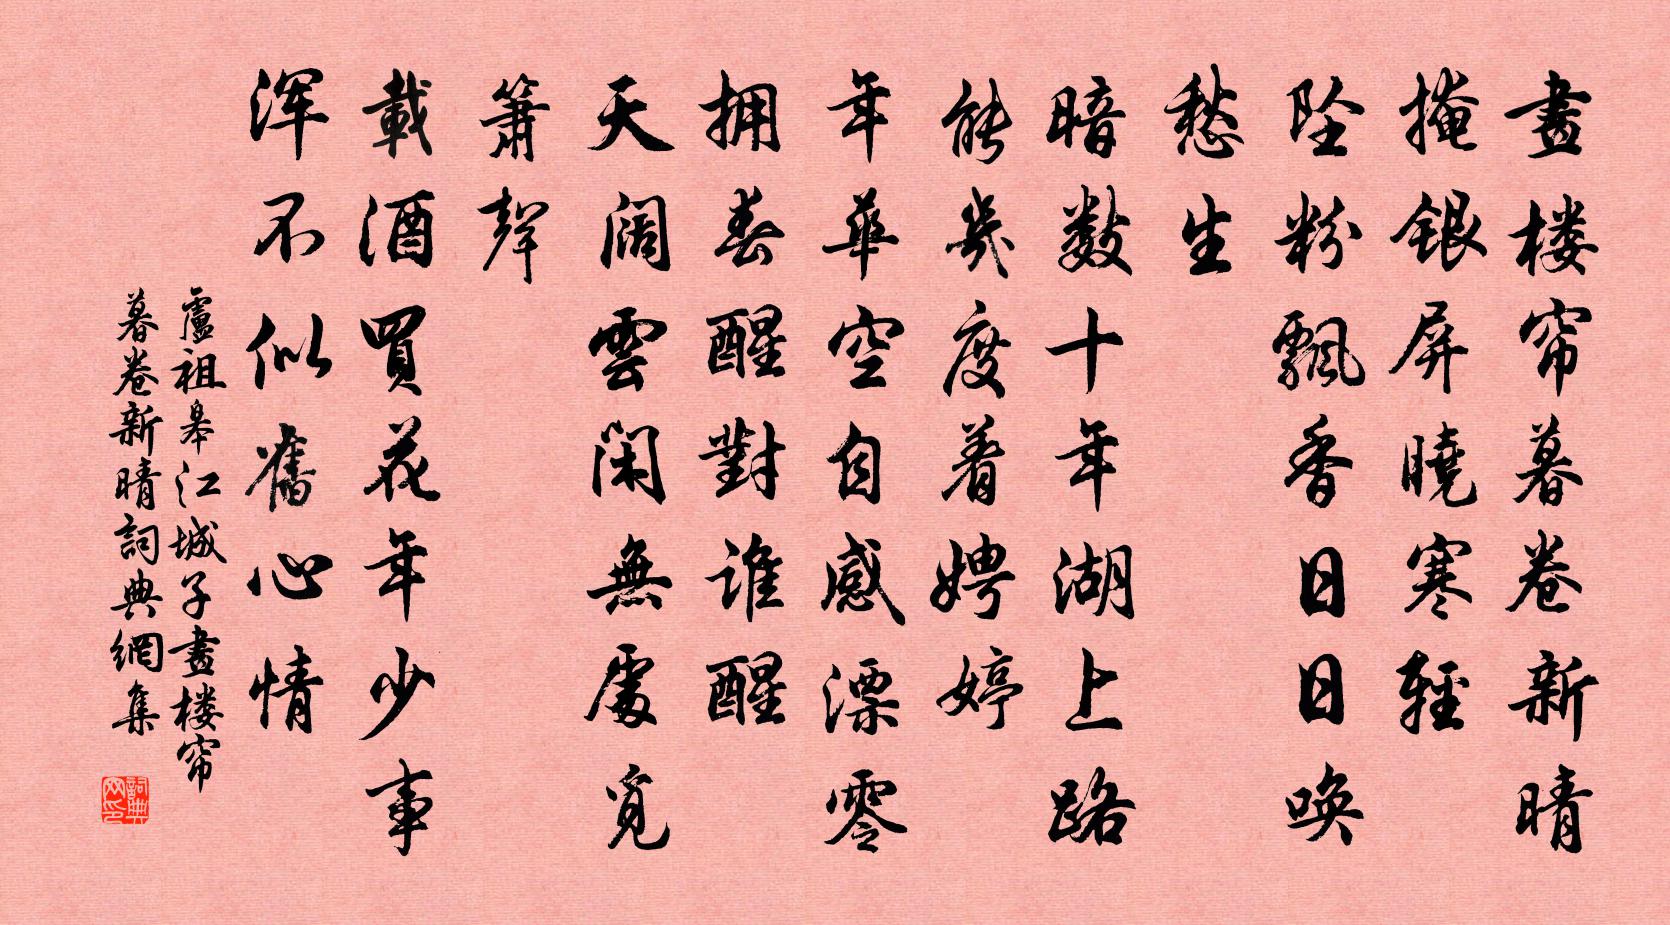 畫楼帘暮卷新晴
掩銀屏曉寒輕
坠粉飄香日日唤
愁生
暗數十年湖上路
能幾度着娉婷
年華空自感漂零
拥春醒對谁醒
天阔雲闲無處覓
簫聲
載酒買花年少事
浑不似舊心情
盧祖皋江城子畫楼帘
暮卷新晴詞典網集
詞典
网印